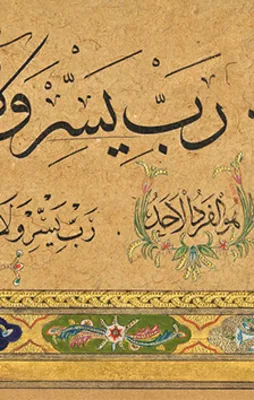 رَبِّ يَسِّرْ وَ
هو الفرد الاحد
رَبِّ يَسِّرْ وَلَا